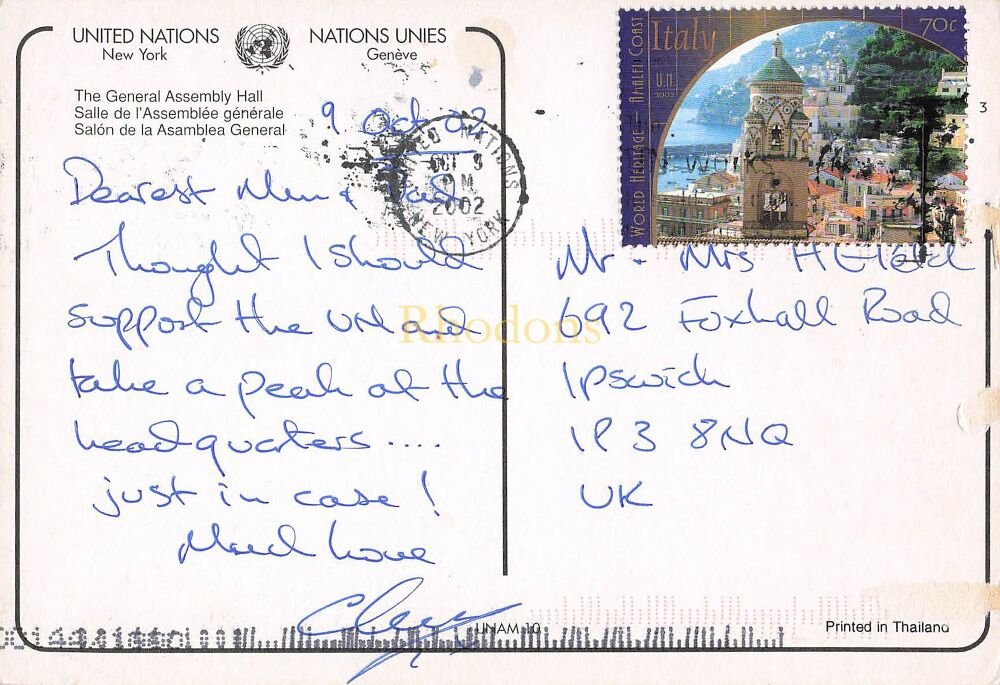 UNITED NATIONS
New York
NATIONS UNIES
Genève
The General Assembly Hall
Salle de l'Assemblée générale
Salón de la Asamblea General
9 Oct 02
Dearest Mum & Dad
Thought I should
support the UN and
take a peak at the
headquarters ....
just in case!
Much love
UNITED NATIONS
OCT 9
PM
2002
NEW YORK
Italy
70c
U.N.
2002
WORLD HERITAGE – AMALFI COAST
3
Mr & Mrs H Field
692 Foxhall Road
Ipswich
IP3 8NQ
UK
Rhodons
UNAM 10
Printed in Thailand